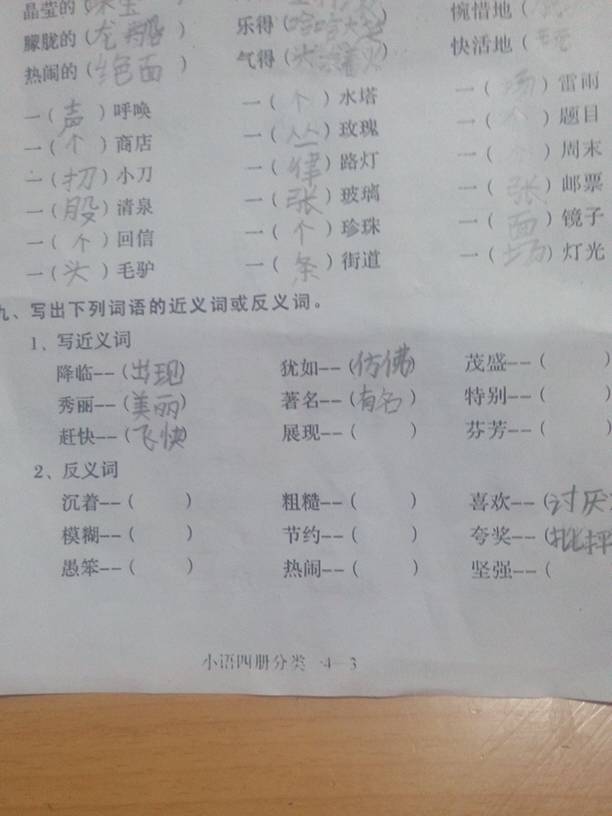 晶莹的（珠宝 惋惜地（
朦胧的（龙 ） 乐得（哈哈大笑 快活地（
热闹的（ 面 ） 气得（大 火
一（声）呼唤 一（个）水塔 一（场）雷雨
一（个）商店 一（丛）玫瑰 一（个）题目
一（ ）小刀 一（ ）路灯 一（个）周末
一（股）清泉 一（张）玻璃 一（张）邮票
一（个）回信 一（个）珍珠 一（面）镜子
一（头）毛驴 一（条）街道 一（场）灯光
九、写出下列词语的近义词或反义词。
1、写近义词
降临--（出现） 犹如--（仿佛） 茂盛--（ ）
秀丽--（美丽） 著名--（有名） 特别--（ ）
赶快--（飞快） 展现--（ ） 芬芳--（ ）
2、反义词
沉着--（ ） 粗糙--（ ） 喜欢--（讨厌
模糊--（ ） 节约--（ ） 夸奖--（批评
愚笨--（ ） 热闹--（ ） 坚强--（
小语四册分类 4—3